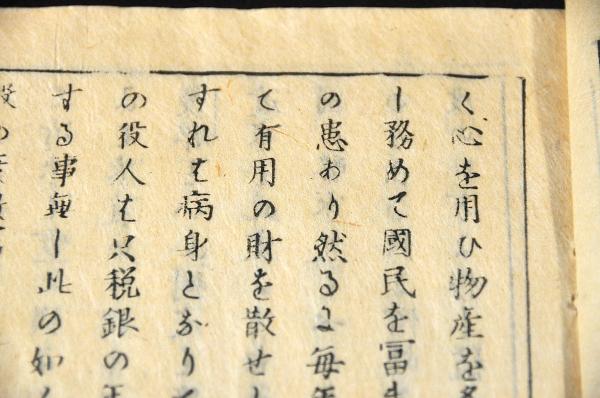 く心を用ひ物産を多
し務めて國民を冨ま
の患あり然るに毎年
て有用の財を散せし
すれは病身となりて
の役人は只税銀の
する事無し此の如く